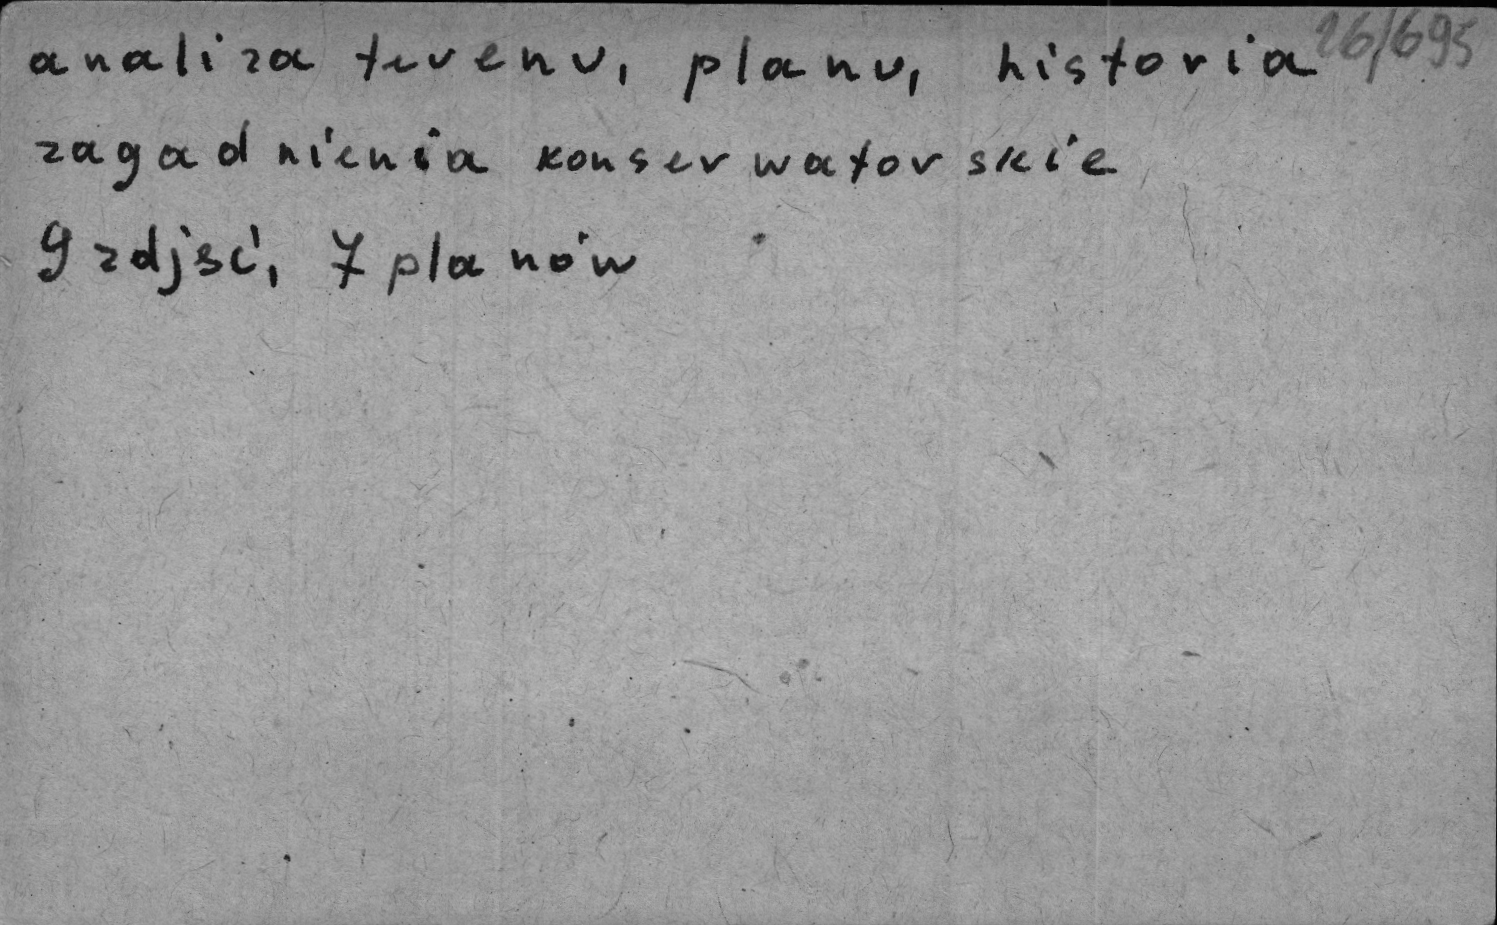 analiza terenu, planu, historia 26/695
zagadnienia konserwatorskie
9 zdjęć, 7 planów